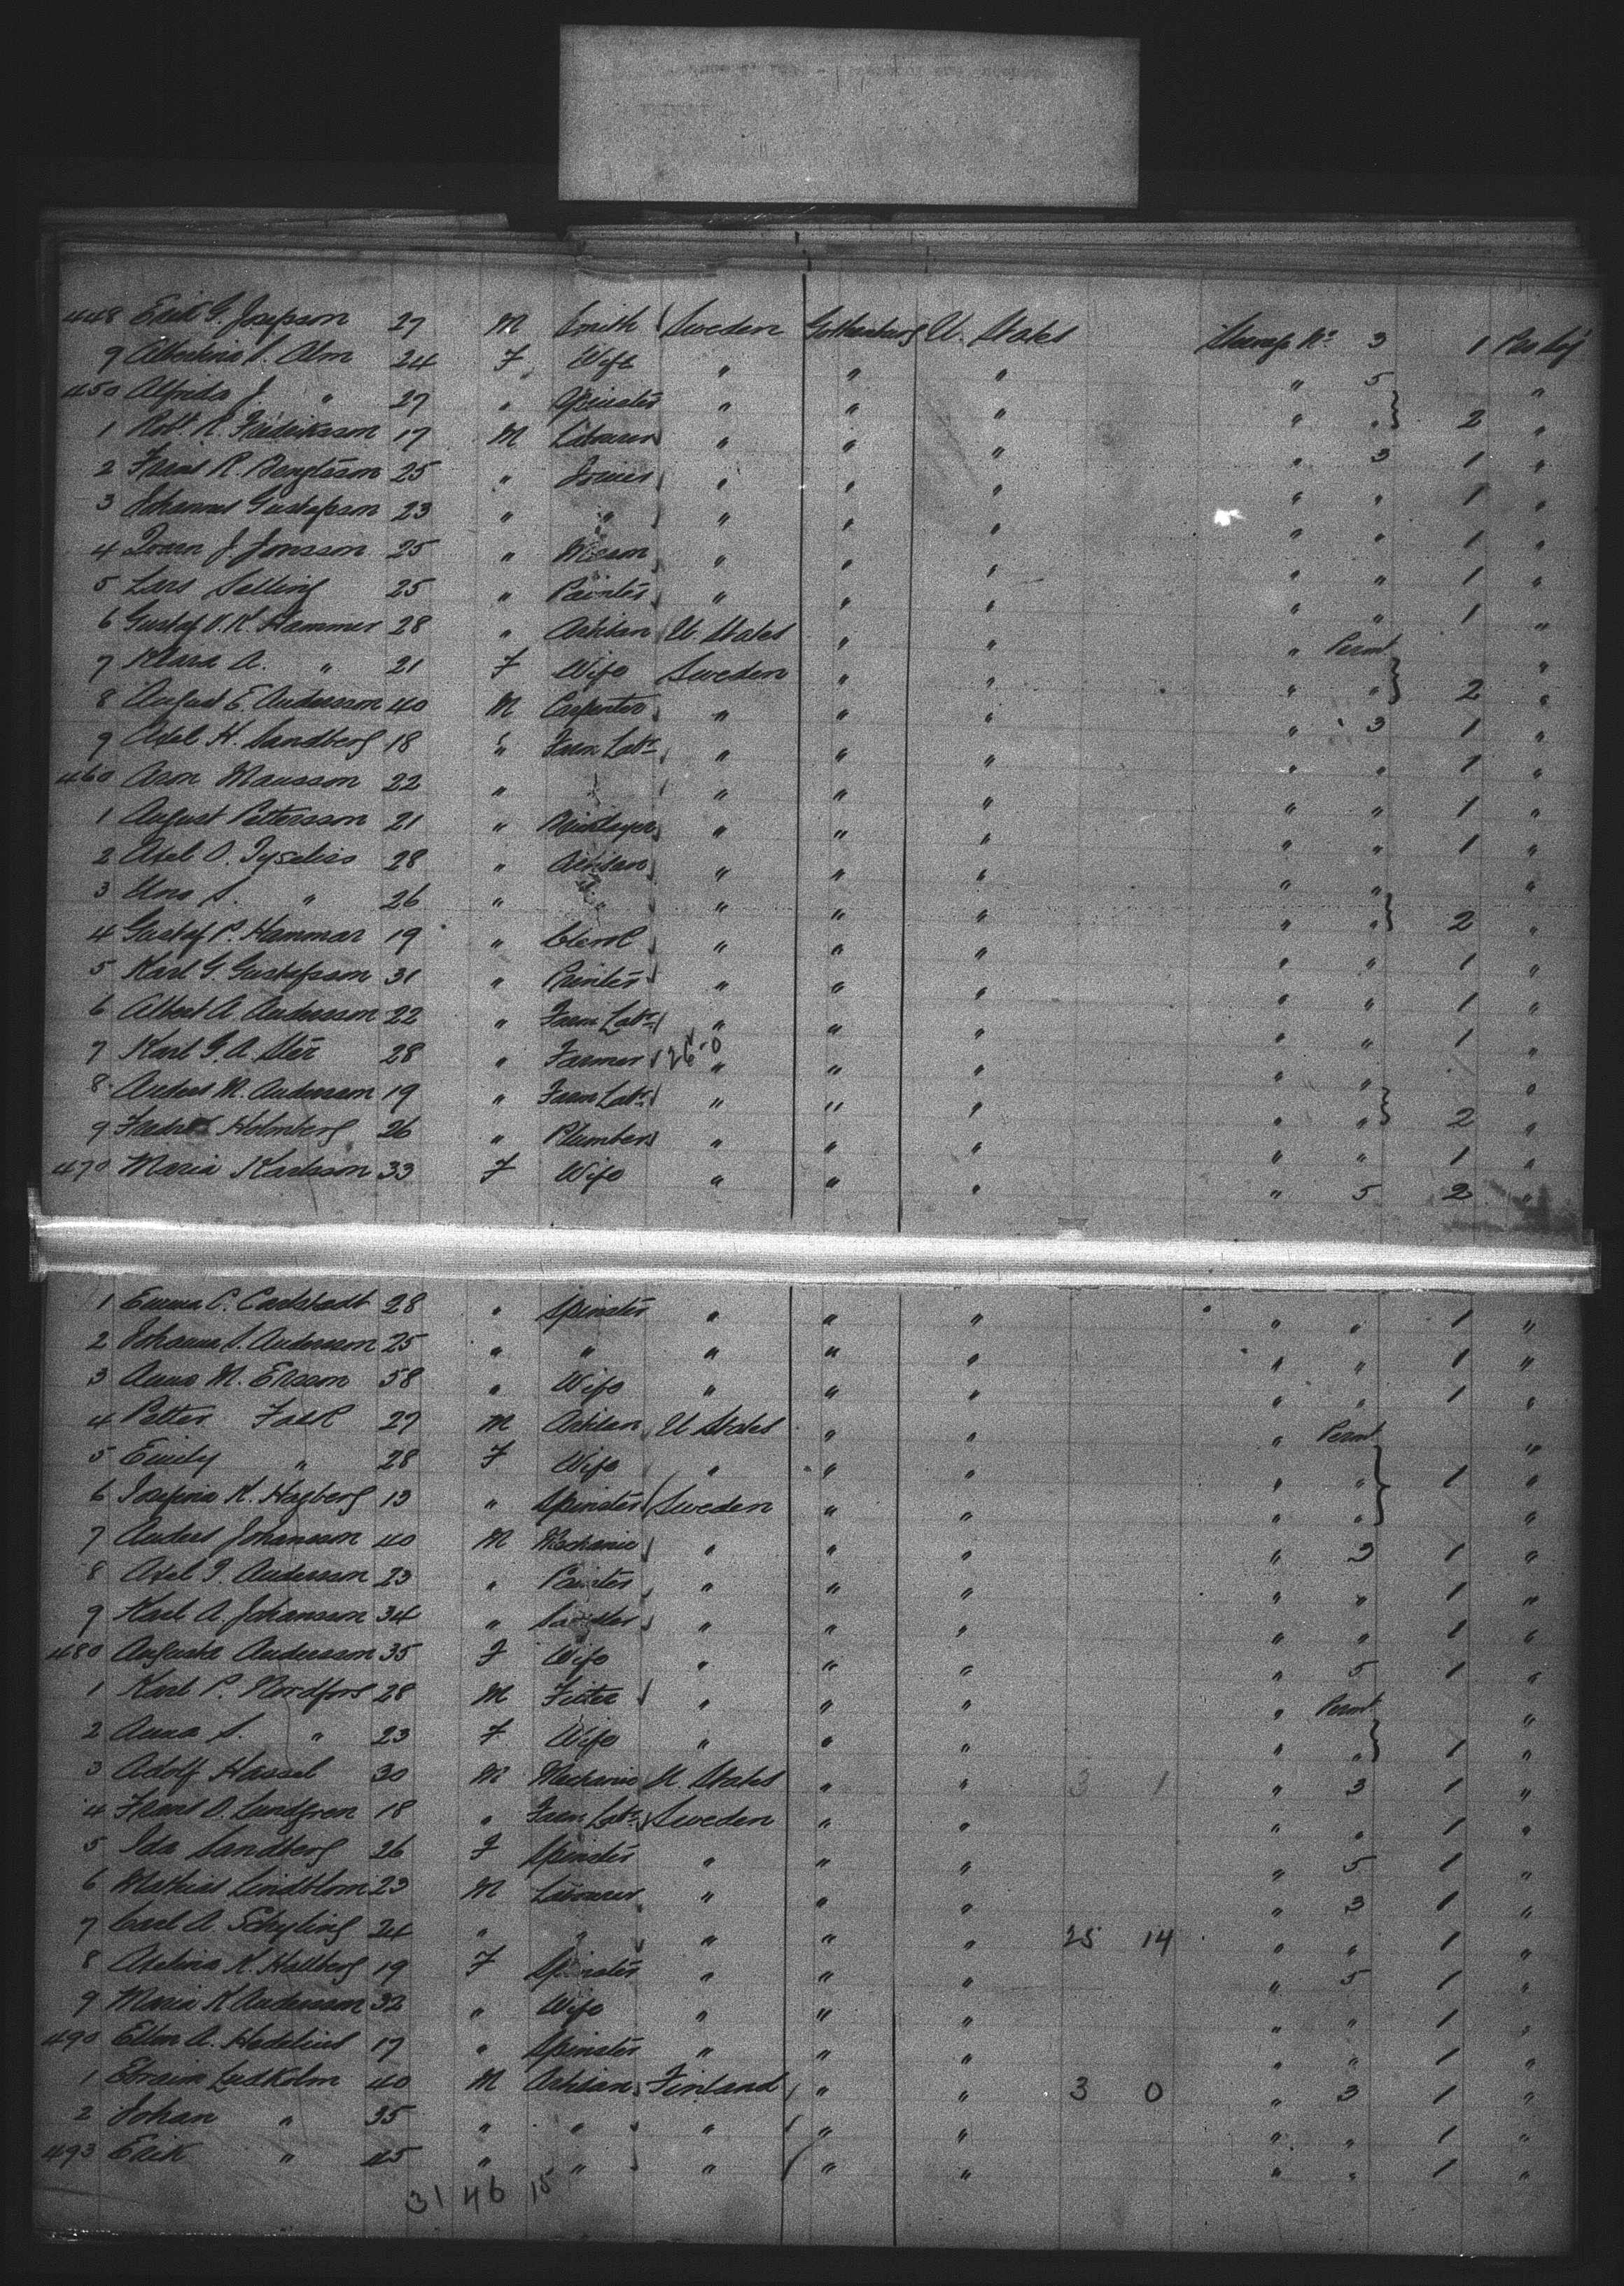 448 Erik G. Josefsson 27 M Smith Sweden Gothenburg U. States Steerage No 3 1
9 Albertina S. Alm 24 F Wife " " " " 5 "
450 Alfrida J. " 27 " Spinster " " " " " 2 "
1 Robt R. Fredriksson 17 M Labourer " " " " 3 1 "
2 Frans R. Bengtsson 25 " Joiner " " " " " 1 "
3 Johannes Gustafsson 23 " " " " " " " 1 "
4 J. Jonsson 25 " Mason " " " " " 1 "
5 Lars Selling 25 " Painter " " " " " 1 "
6 Gustaf V. K. Hammer 28 " Artisan U. States " " " Permt "
7 Klara A. " 21 F Wife Sweden " " " " 2 "
8 August E. Andersson 40 M Carpenter " " " " 3 1 "
9 Axel H. Sandberg 18 " Farm Labr " " " " " 1 "
460 Aron Mansson 22 " " " " " " " 1 "
1 August Pettersson 21 " Bricklayer " " " " " 1 "
2 Axel O. 28 " Artisan " " " " " "
3 S. " 26 " " " " " " " 2 "
4 Gustaf P. Hammar 19 " Clerk " " " " " 1 "
5 Karl G. Gustafsson 31 " " " " " " 1 "
6 Albert A. Andersson 22 " Farm Labr " " " " " 1 "
7 Karl G. A. 28 " Farmer 26-0 " " " " " "
8 Anders M. Andersson 19 " Farm Labr " " " " " 2 "
9 Holmberg 26 " Plumber " " " " " 1 "
470 Maria Karlsson 33 F Wife " " " " 5 2 "
1 Emma C. Carlstadt 28 " Spinster " " " " " 1 "
2 Johanna S. Andersson 25 " " " " " " " 1 "
3 Anna M. Ersson 58 " Wife " " " " " 1 "
4 Petter Falk 27 M Artisan U States " " " Permt "
5 Emily " 28 F Wife " " " " " 1 "
6 Josefina K. Hagberg 13 " Spinster Sweden " " " " "
7 Anders Johansson 40 M Mechanic " " " " 3 1 "
8 Axel J. Andersson 23 " Painter " " " " " 1 "
9 Karl A. Johansson 34 " Saddler " " " " " 1 "
480 Augusta Andersson 35 F Wife " " " " 5 1 "
1 Karl P. Nordfors 28 M Fitter " " " " Permt "
2 Anna S. " 23 F Wife " " " " " 1 "
3 Adolf Hassel 30 M Mechanic U. States " " 3 1 " 3 1 "
4 Frans O. Lundgren 18 " Farm Labr Sweden " " " " 1 "
5 Ida Sandberg 26 F Spinster " " " " 5 1 "
6 Mathias Lindblom 23 M Labourer " " " " 3 1 "
7 Carl A. Schyling 24 " " " " " 25 14 " " 1 "
8 Axelina K. Hallberg 19 F Spinster " " " " 5 1 "
9 Maria K Andersson 32 " Wife " " " " " 1 "
490 Ellen A. Hedelius 17 " Spinster " " " " " 1 "
1 40 M Artisan Finland " " 3 0 " 3 1 "
2 Johan " 35 " " " " " " " 1 "
493 Erik " 45 " " " " " " " 1 "
31 46 15